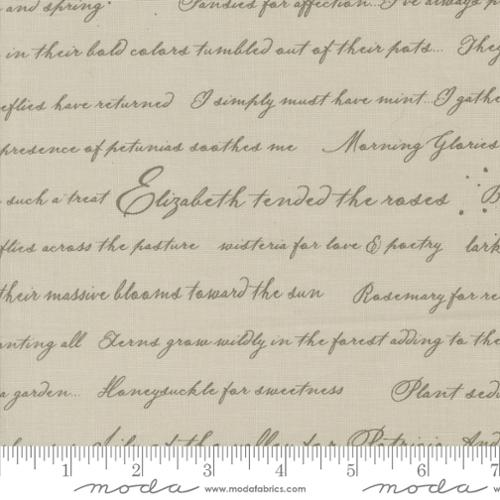 and spring. Pansies for affection... I've always p
in their bold colors tumbled out of their pots... They
eflies have returned I simply must have mint... I gathe
presence of petunias soothes me Morning Glories
such a treat Elizabeth tended the roses B
flies across the pasture wisteria for love & poetry lark
their massive blooms toward the sun Rosemary for re
anting all Ferns grow wildly in the forest adding to the
a garden... Honeysuckle for sweetness Plant sedu
of the valley for Patricia And
1 2 3 4 5 6 7
moda www.modafabrics.com moda